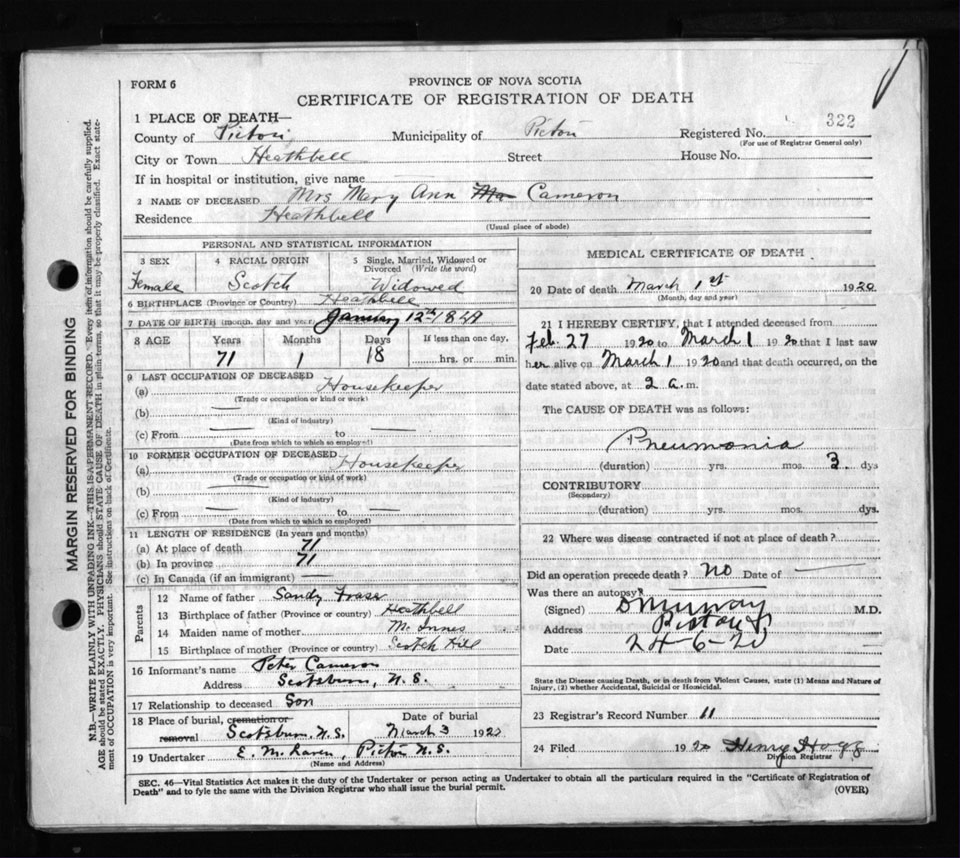 FORM 6
PROVINCE OF NOVA SCOTIA
CERTIFICATE OF REGISTRATION OF DEATH
1 PLACE OF DEATH—
County of Pictou Municipality of Pictou Registered No. 322
(For use of Registrar General only)
City or Town Heathbell Street House No.
If in hospital or institution, give name
2 NAME OF DECEASED Mrs Mary Ann Cameron
Residence Heathbell
(Usual place of abode)
PERSONAL AND STATISTICAL INFORMATION
3 SEX 4 RACIAL ORIGIN 5 Single, Married, Widowed or Divorced (Write the word)
Female Scotch Widowed
6 BIRTHPLACE (Province or Country) Heathbell
7 DATE OF BIRTH (month, day and year) January 12th 1849
8 AGE Years Months Days If less than one day,
71 1 18 hrs. or min.
9 LAST OCCUPATION OF DECEASED
(a) Housekeeper
(Trade or occupation or kind or work)
(b) —
(Kind of industry)
(c) From — to —
(Date from which to which so employed)
10 FORMER OCCUPATION OF DECEASED
(a) Housekeeper
(Trade or occupation or kind of work)
(b) —
(Kind of industry)
(c) From — to —
(Date from which to which so employed)
11 LENGTH OF RESIDENCE (In years and months)
(a) At place of death 71
(b) In province 71
(c) In Canada (if an immigrant) —
Parents
12 Name of father Sandy Fraser
13 Birthplace of father (Province or country) Heathbell
14 Maiden name of mother McInnes
15 Birthplace of mother (Province or country) Scotch Hill
16 Informant's name Peter Cameron
Address Scotsburn, N.S.
17 Relationship to deceased Son
18 Place of burial, cremation or removal Date of burial
Scotsburn, N.S. March 3 192
19 Undertaker Pictou N.S.
(Name and Address)
MEDICAL CERTIFICATE OF DEATH
20 Date of death March 1st 1920
(Month, day and year)
21 I HEREBY CERTIFY, that I attended deceased from
Feb. 27 1920 to March 1 1920 that I last saw
her alive on March 1 1920 and that death occurred, on the
date stated above, at 2 a.m.
The CAUSE OF DEATH was as follows:
Pneumonia
(duration) yrs. mos. 3 dys
CONTRIBUTORY
(Secondary)
(duration) yrs. mos. dys.
22 Where was disease contracted if not at place of death?
Did an operation precede death? No Date of —
Was there an autopsy?
(Signed) M.D.
Address Pictou
Date 24-6-20
State the Disease causing Death, or in death from Violent Causes, state (1) Means and Nature of
Injury, (2) whether Accidental, Suicidal or Homicidal.
23 Registrar's Record Number 11
24 Filed 1920 Henry Hogg
Division Registrar
SEC. 46—Vital Statistics Act makes it the duty of the Undertaker or person acting as Undertaker to obtain all the particulars required in the "Certificate of Registration of
Death" and to fyle the same with the Division Registrar who shall issue the burial permit.
(OVER)
MARGIN RESERVED FOR BINDING
N.B.—WRITE PLAINLY WITH UNFADING INK—THIS IS A PERMANENT RECORD. Every item of information should be carefully supplied.
AGE should be stated EXACTLY. PHYSICIANS should STATE CAUSE OF DEATH in plain terms, so that it may be properly classified. Exact state-
ment of OCCUPATION is very important. See instructions on back of Certificate.